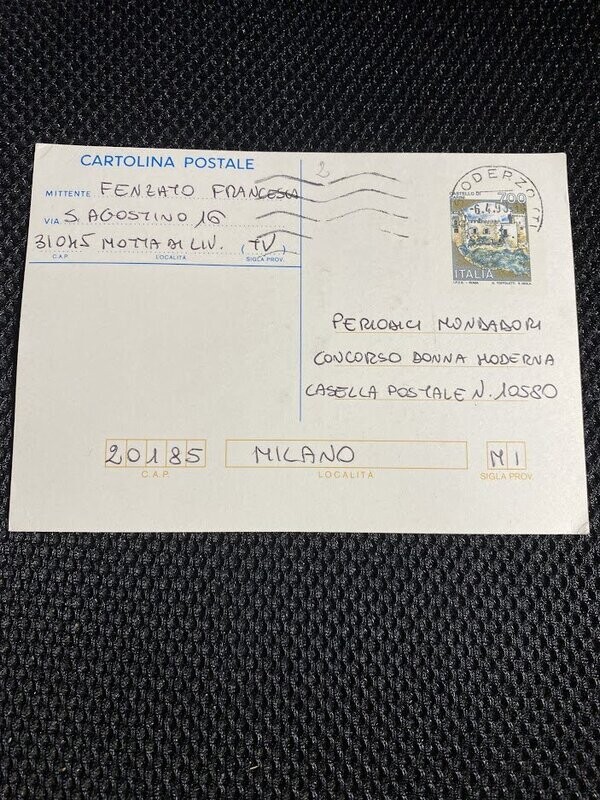 CARTOLINA POSTALE
MITTENTE FENZATO FRANCESCA
VIA S. AGOSTINO 16
31045 MOTTA DI LIV. (TV)
C.A.P. LOCALITÀ SIGLA PROV.
2
ODERZO (TV)
CASTELLO DI
700
6.4.93
ITALIA
I.P.Z.S. - ROMA
PERIODICI MONDADORI
CONCORSO DONNA MODERNA
CASELLA POSTALE N. 10580
20185 MILANO MI
C.A.P. LOCALITÀ SIGLA PROV.